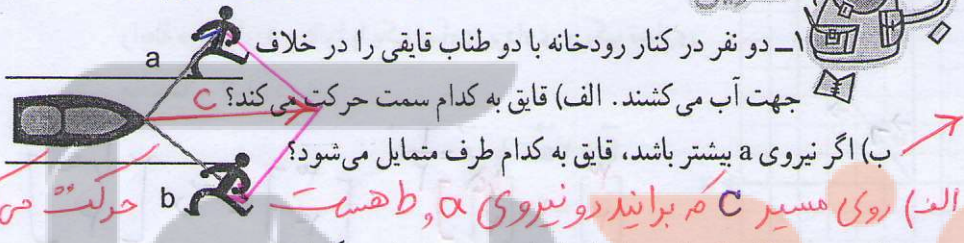 ۱ــ دو نفر در کنار رودخانه با دو طناب قایقی را در خلاف
a
جهت آب می‌کشند. الف) قایق به کدام سمت حرکت می‌کند؟
C
ب) اگر نیروی a بیشتر باشد، قایق به کدام طرف متمایل می‌شود؟
b
الف) روی مسیر C که برآیند دو نیروی a و b هست حرکت می